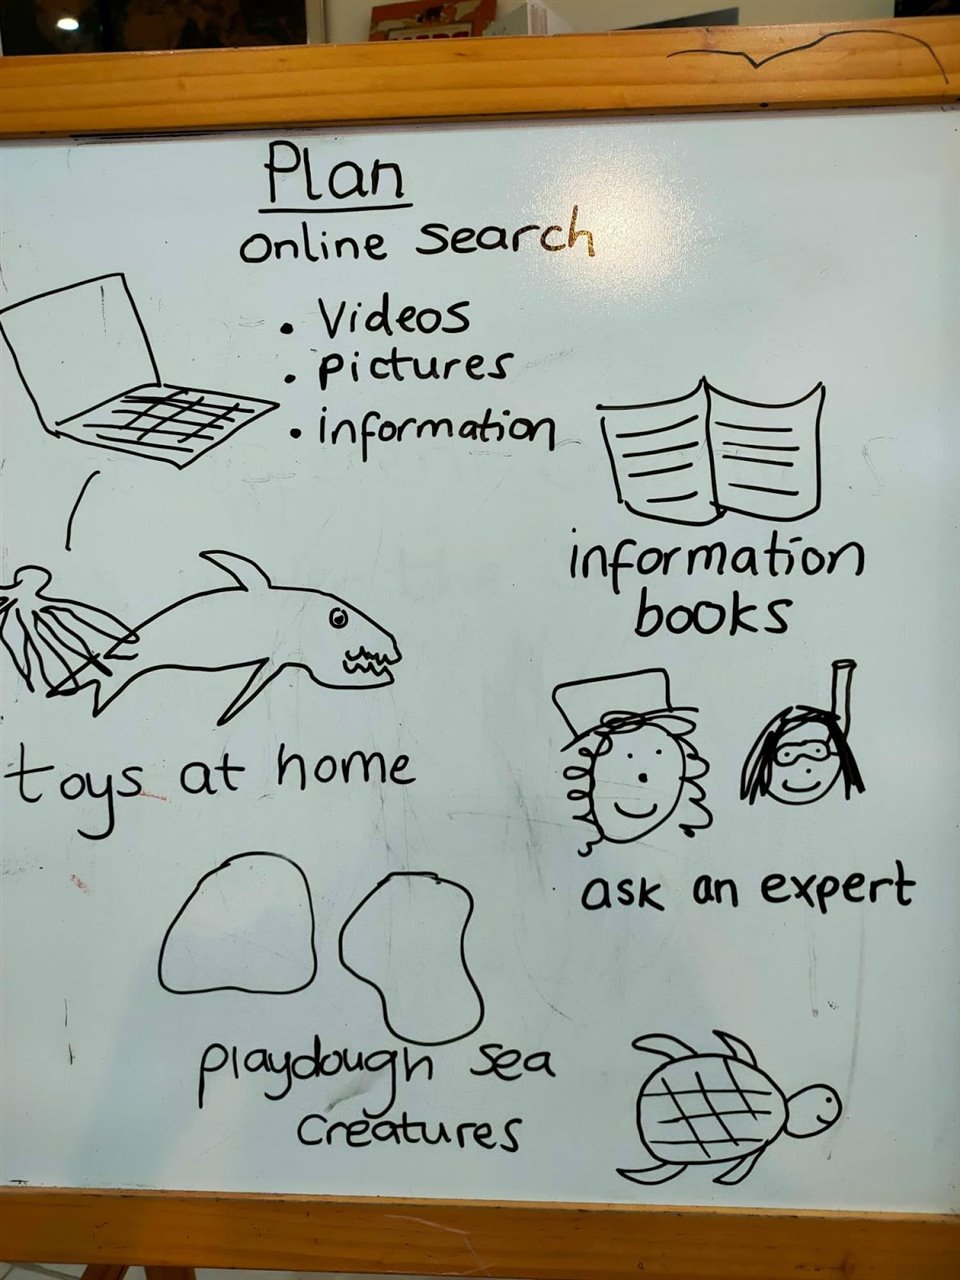 Plan
online search
• Videos
• pictures
• information
information
books
toys at home
ask an expert
playdough sea
creatures